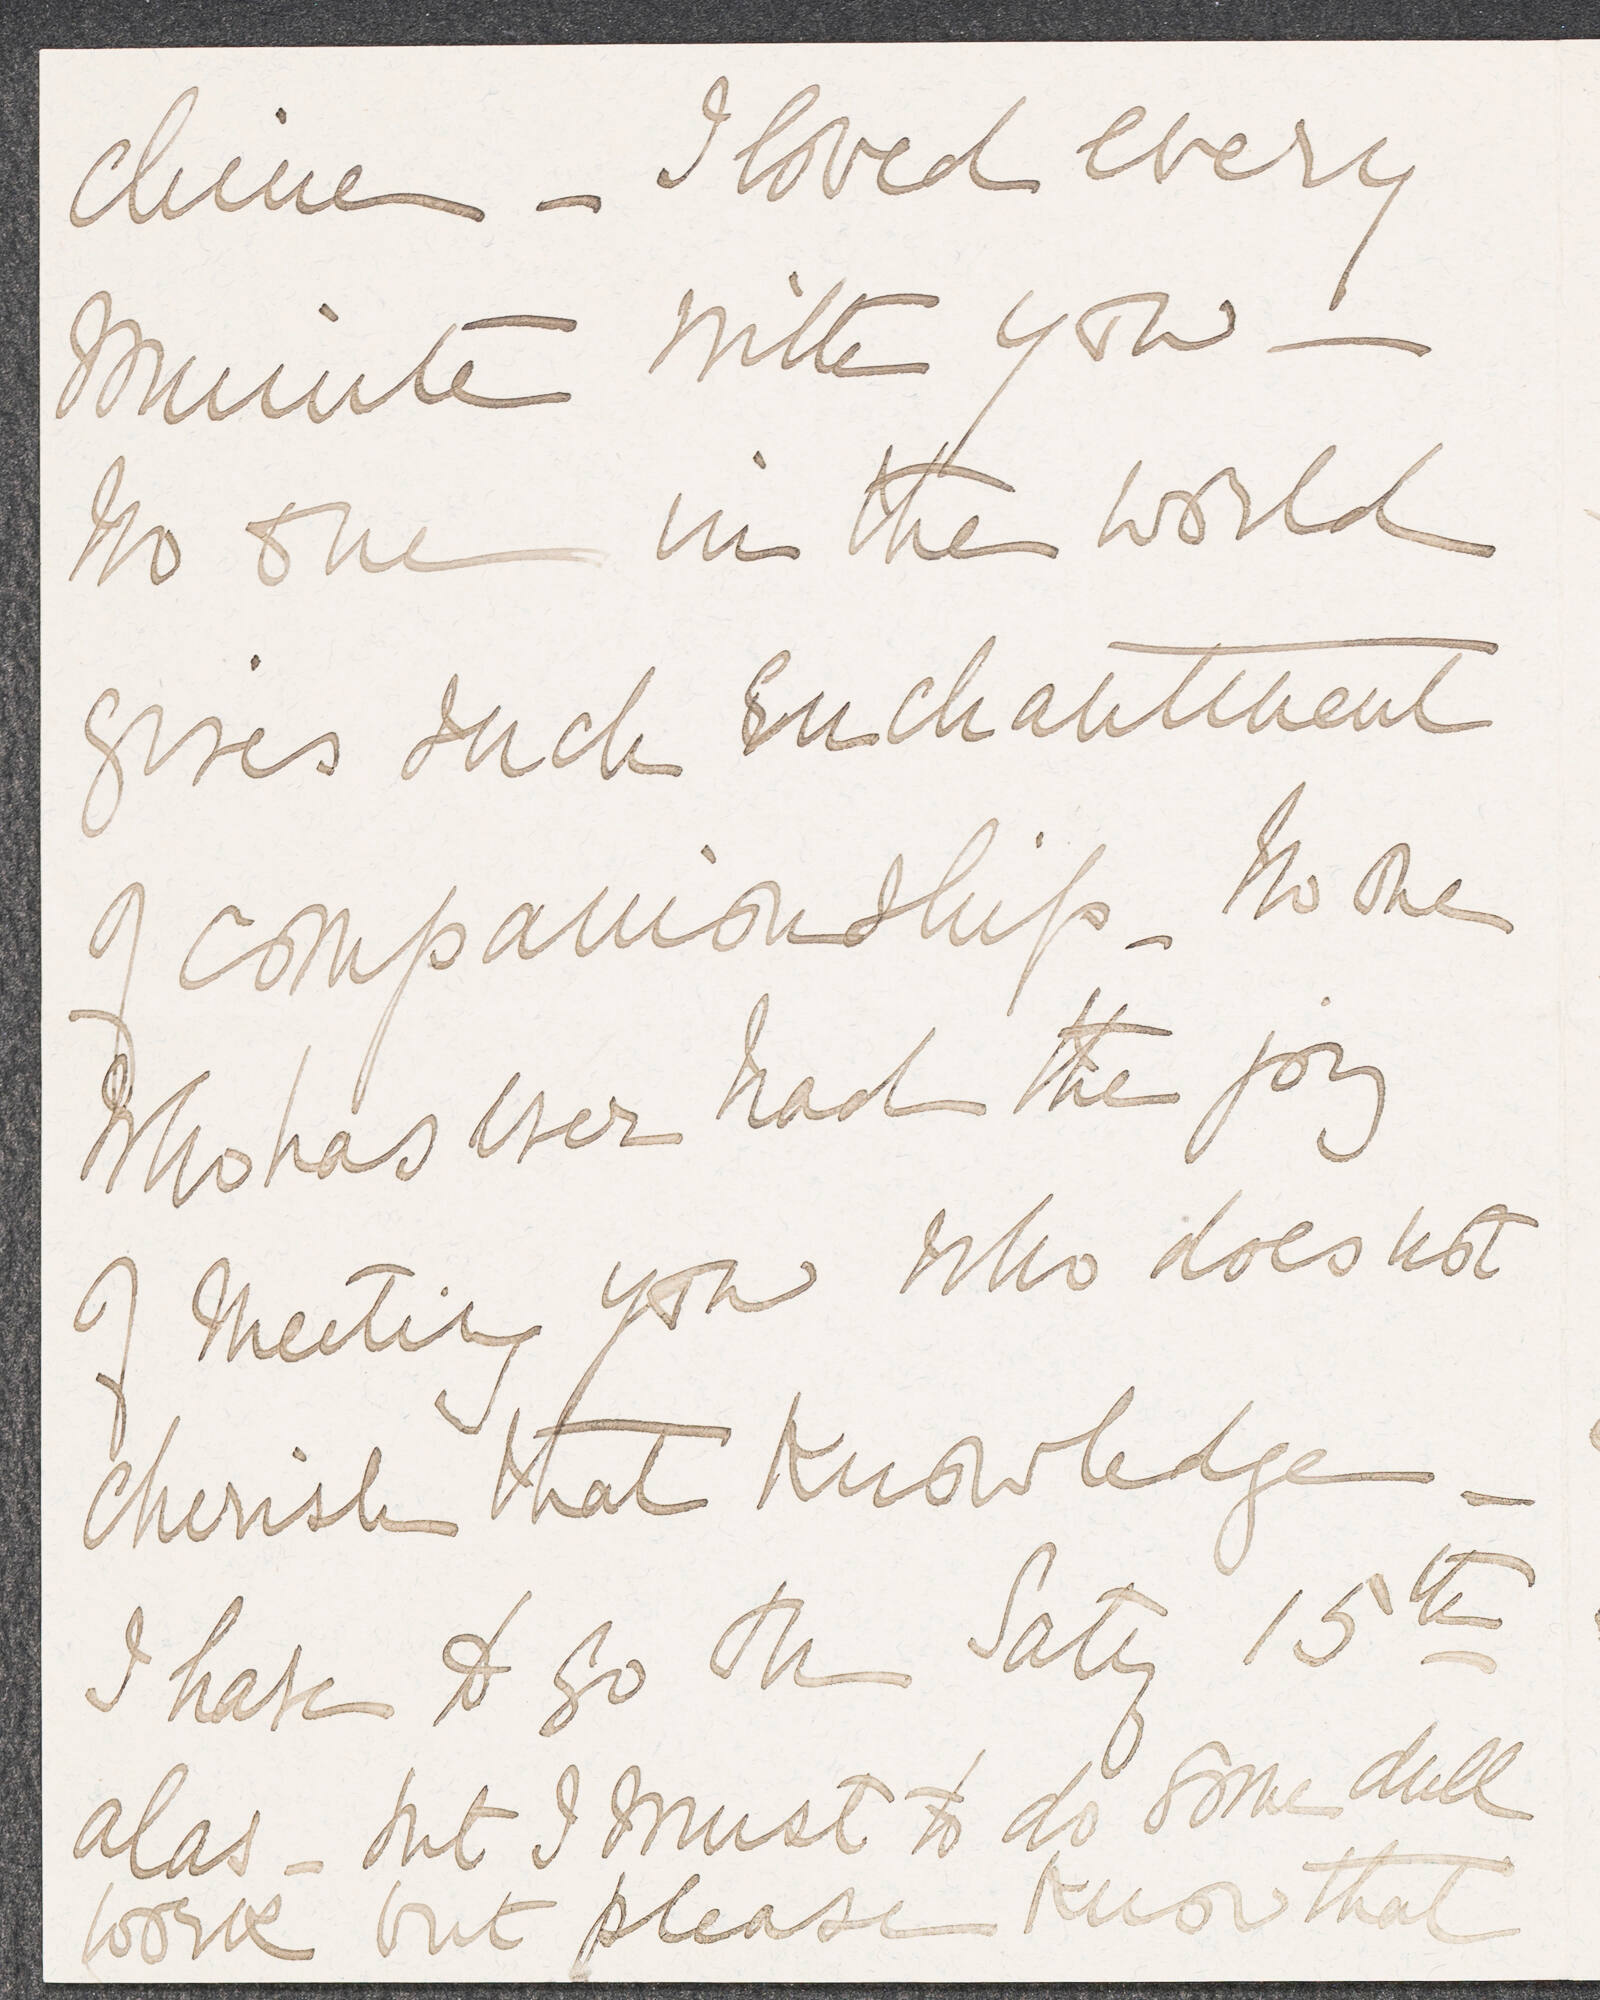 chine – I loved every
minute with you –
No one in the world
gives such enchantment
of companionship – No one
who has ever had the joy
of meeting you who does not
cherish that knowledge –
I have to go on Saty 15th
alas – but I must to do some dull
work but please know that